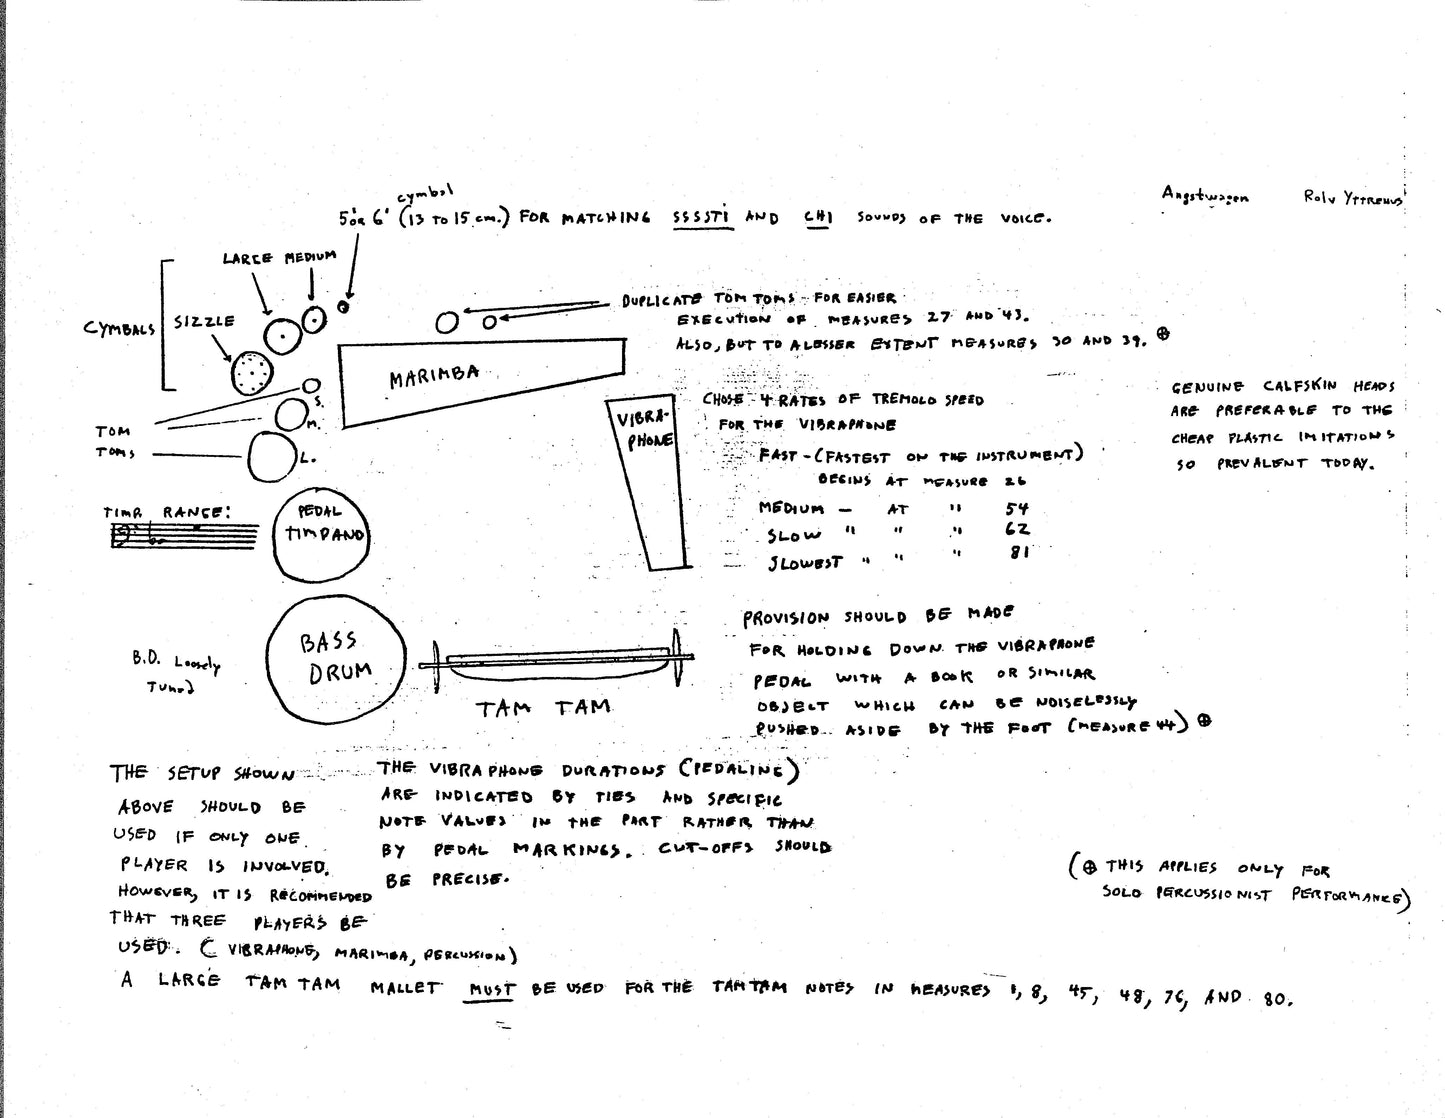 Angstwagen Rolv Yttrehus
cymbal
5" or 6" (13 TO 15 cm.) FOR MATCHING SSSSTI AND CHI SOUNDS OF THE VOICE.
LARGE MEDIUM
CYMBALS
SIZZLE
DUPLICATE TOM TOMS - FOR EASIER
EXECUTION OF MEASURES 27 AND 43.
ALSO, BUT TO A LESSER EXTENT MEASURES 30 AND 39. ⊕
MARIMBA
S.
M.
L.
TOM
TOMS
VIBRA-
PHONE
CHOSE 4 RATES OF TREMOLO SPEED
FOR THE VIBRAPHONE
FAST - (FASTEST ON THE INSTRUMENT)
BEGINS AT MEASURE 26
MEDIUM — AT " 54
SLOW " " " 62
SLOWEST " " " 81
GENUINE CALFSKIN HEADS
ARE PREFERABLE TO THE
CHEAP PLASTIC IMITATIONS
SO PREVALENT TODAY.
TIMP. RANGE:
PEDAL
TIMPANO
BASS
DRUM
B.D. Loosely
Tuned
TAM TAM
PROVISION SHOULD BE MADE
FOR HOLDING DOWN THE VIBRAPHONE
PEDAL WITH A BOOK OR SIMILAR
OBJECT WHICH CAN BE NOISELESSLY
PUSHED ASIDE BY THE FOOT (MEASURE 44) ⊕
THE SETUP SHOWN
ABOVE SHOULD BE
USED IF ONLY ONE
PLAYER IS INVOLVED.
HOWEVER, IT IS RECOMMENDED
THAT THREE PLAYERS BE
USED. (VIBRAPHONE, MARIMBA, PERCUSSION)
THE VIBRAPHONE DURATIONS (PEDALING)
ARE INDICATED BY TIES AND SPECIFIC
NOTE VALUES IN THE PART RATHER THAN
BY PEDAL MARKINGS. CUT-OFFS SHOULD
BE PRECISE.
(⊕ THIS APPLIES ONLY FOR
SOLO PERCUSSIONIST PERFORMANCE)
A LARGE TAM TAM MALLET MUST BE USED FOR THE TAM TAM NOTES IN MEASURES 1, 8, 45, 48, 76, AND 80.